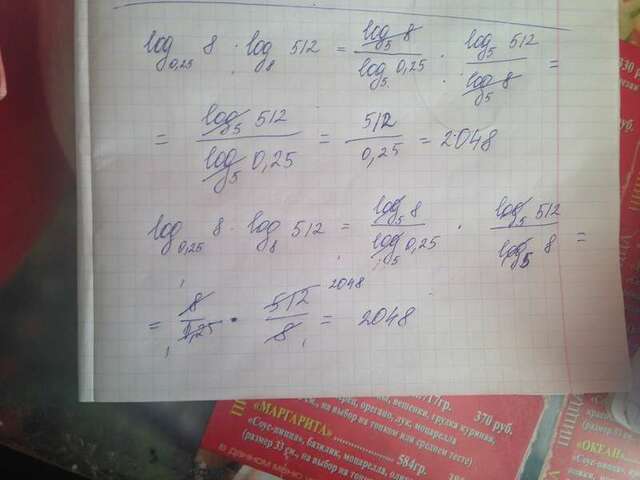 log₀,₂₅ 8 · log₈ 512 = log₅ 8 / log₅ 0,25 · log₅ 512 / log₅ 8 =
= log₅ 512 / log₅ 0,25 = 512 / 0,25 = 2048
log₀,₂₅ 8 · log₈ 512 = log₅ 8 / log₅ 0,25 · log₅ 512 / log₅ 8 =
2048
= 8 / 0,25 · 512 / 8 = 2048
370 руб.
«МАРГАРИТА»
584гр.
«Соус-пицца», базилик, моцарелла,
(размер 33 см., на выбор на тонком или среднем тесте)
«ОКЕАН»